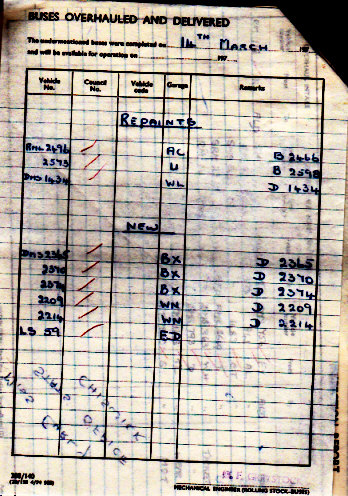 BUSES OVERHAULED AND DELIVERED
The undermentioned buses were completed on 14TH MARCH 197
and will be available for operation on 197
Vehicle No. Council No. Vehicle code Garage Remarks
REPAINTS
RML 2496 AC B 2466
2573 U B 2598
DMS 1434 WL D 1434
NEW
DMS 2365 BX D 2365
2370 BX D 2370
2374 BX D 2374
2209 WN D 2209
2214 WN D 2214
LS 59 ED
CHISWICK
MECHANICAL ENGINEER (ROLLING STOCK—BUSES)